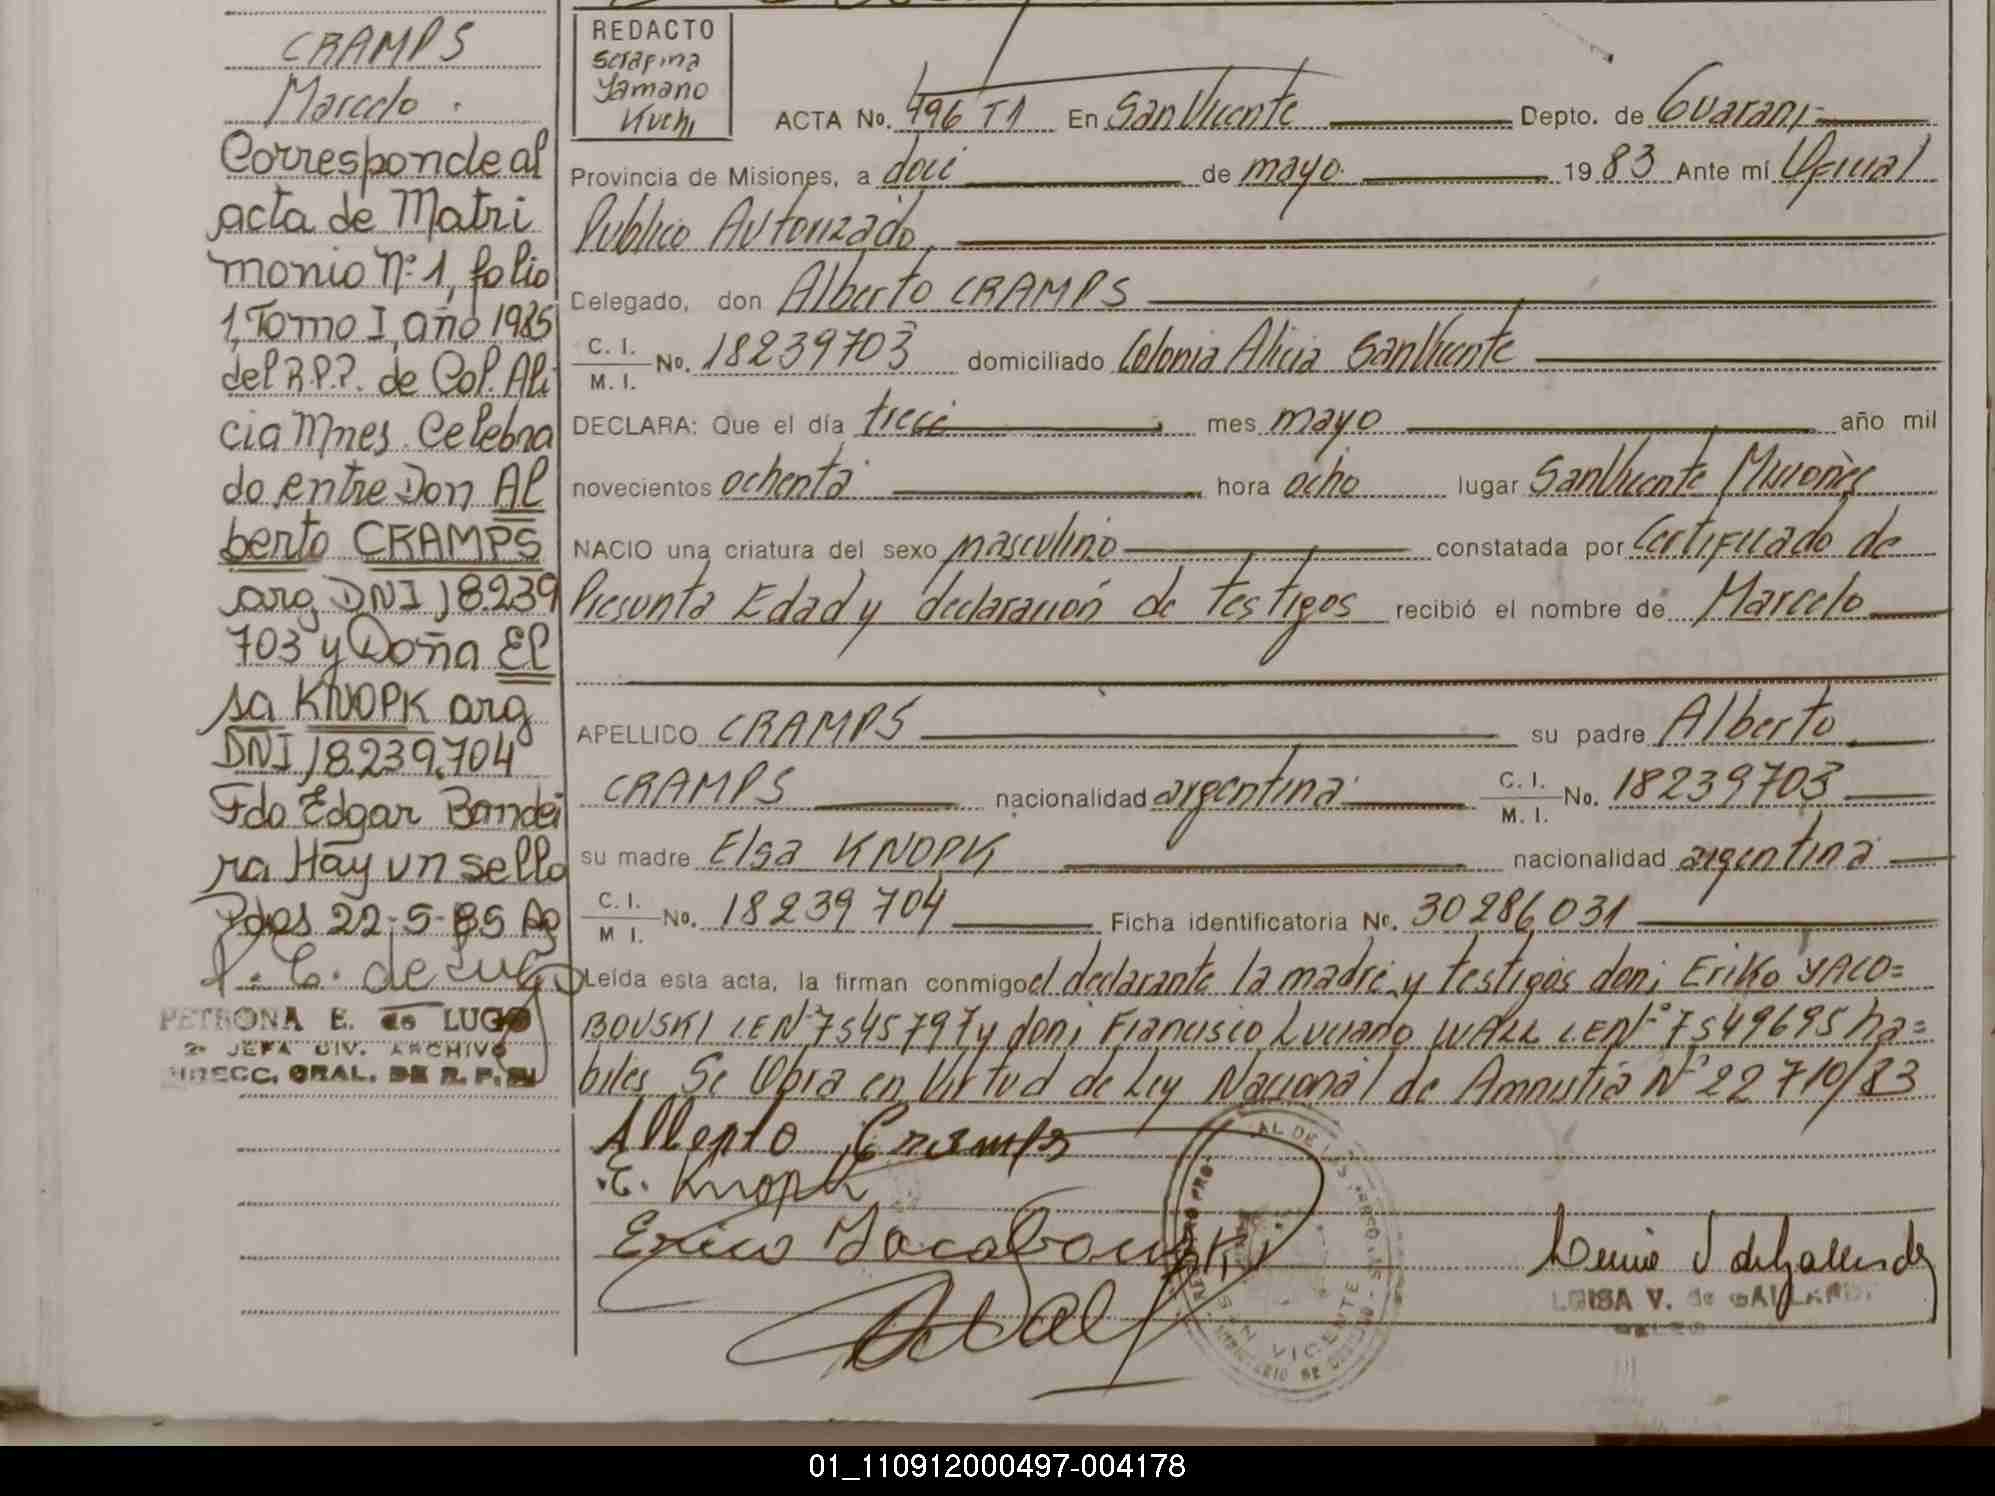 CRAMPS
Marcelo.
Corresponde al
acta de Matri
monio Nº 1, folio
1, Tomo I, año 1985
del R.P.P. de Col. Ali
cia Mnes. Celebra
do entre Don Al
berto CRAMPS
arg DNI 18.239
703 y Doña El
sa KNOPK arg
DNI 18.239.704
Fdo Edgar Bandei
ra Hay un sello
Pdas 22-5-85
PETRONA E. de LUGO
2ª JEFA DIV. ARCHIVO
DIRECC. GRAL. DE R. P. P.
REDACTO
Serapina
Yamano
Kuchi
ACTA No. 496 T1 En San Vicente Depto. de Guarani
Provincia de Misiones, a doce de mayo 1983 Ante mí Oficial
Publico Autorizado
Delegado, don Alberto CRAMPS
C. I.
M. I. No. 18239703 domiciliado Colonia Alicia San Vicente
DECLARA: Que el día trece mes mayo año mil
novecientos ochenta hora ocho lugar San Vicente Misiones
NACIO una criatura del sexo masculino constatada por Certificado de
Presunta Edad y declaración de testigos recibió el nombre de Marcelo
APELLIDO CRAMPS su padre Alberto
CRAMPS nacionalidad argentina C. I.
M. I. No. 18239703
su madre Elsa KNOPK nacionalidad argentina
C. I.
M I. No. 18239704 Ficha identificatoria No. 30286031
Leída esta acta, la firman conmigo el declarante la madre y testigos don; Eriko YACO=
BOVSKI L.E Nº 7545797 y don; Francisco Luciano WALL L.E Nº 7549695 ha=
biles. Se Obra en Virtud de Ley Nacional de Amnistia Nº 22710/83
Alberto Cramps
E. Knopk
Erico Jacobowski
SAN VICENTE
LUISA V. de GALLARDO
01_110912000497-004178